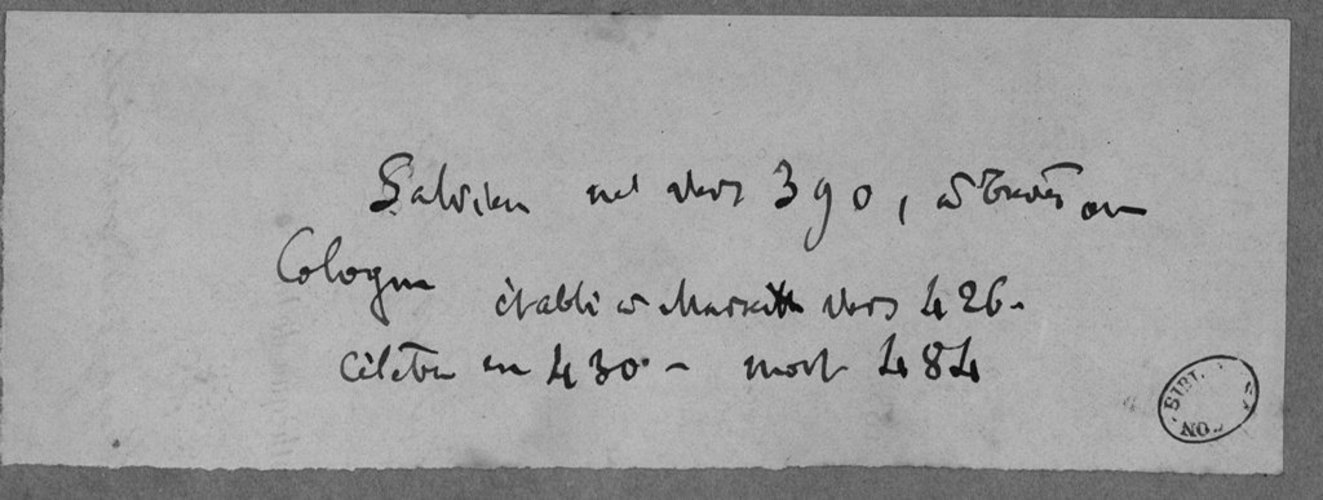 Salvien né vers 390, à Trèves ou
Cologne établi à Marseille vers 426 -
célèbre en 430 - mort 484
BIBL